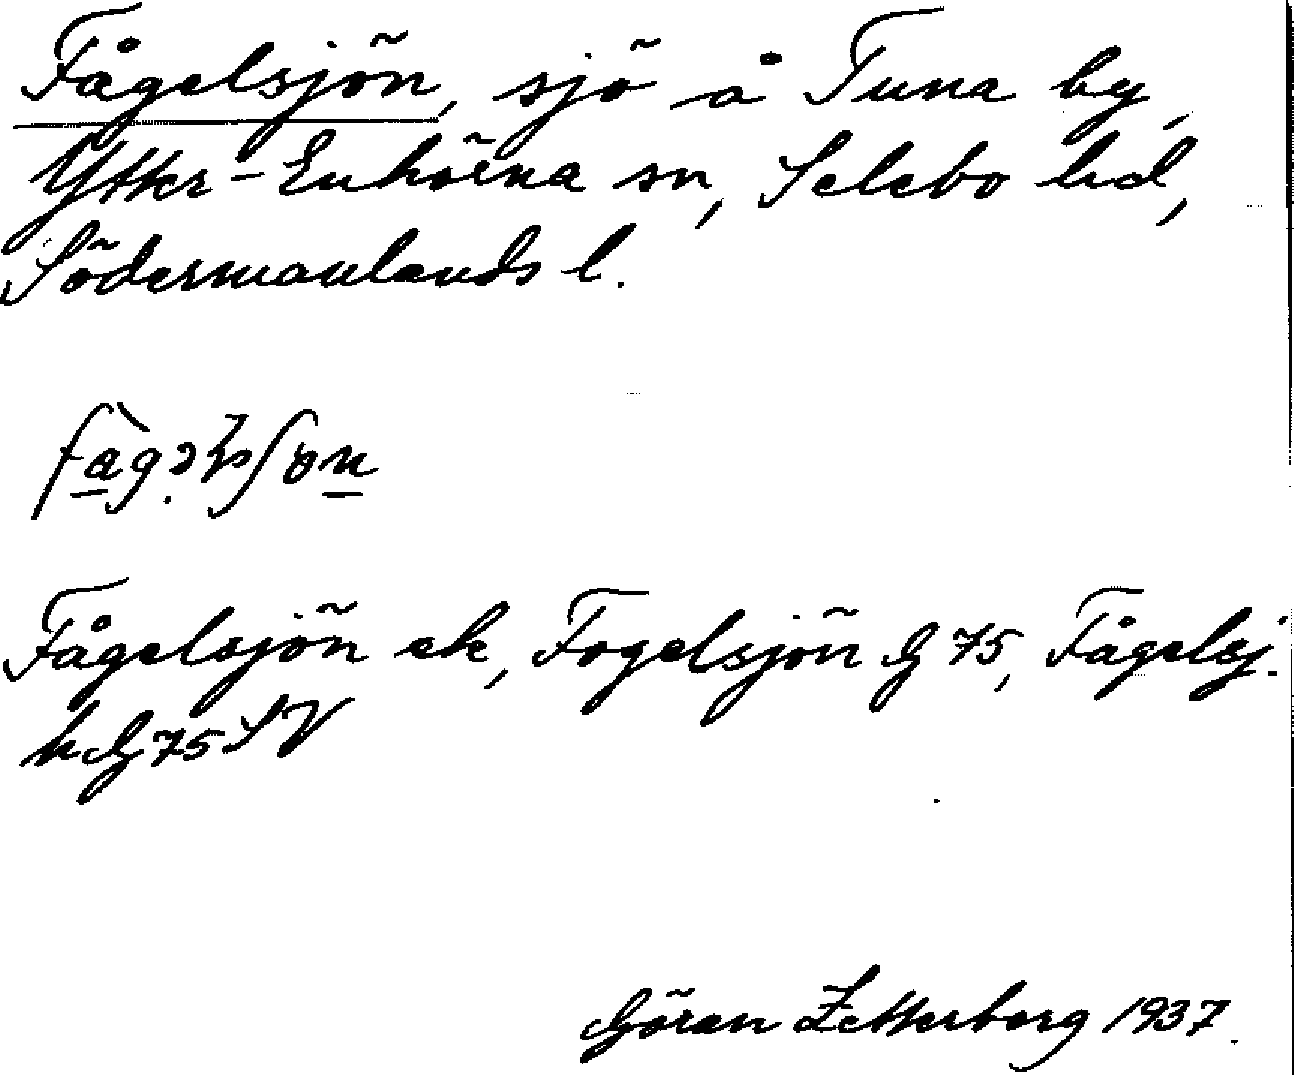 Fågelsjön, sjö å Tuna by,
Ytter-Enhörna sn, Selebo hd,
Södermanlands l.
Fågelsjön ek, Fogelsjön G 75, Fågelsj.
h G 75 SV
Göran Zetterborg 1937.